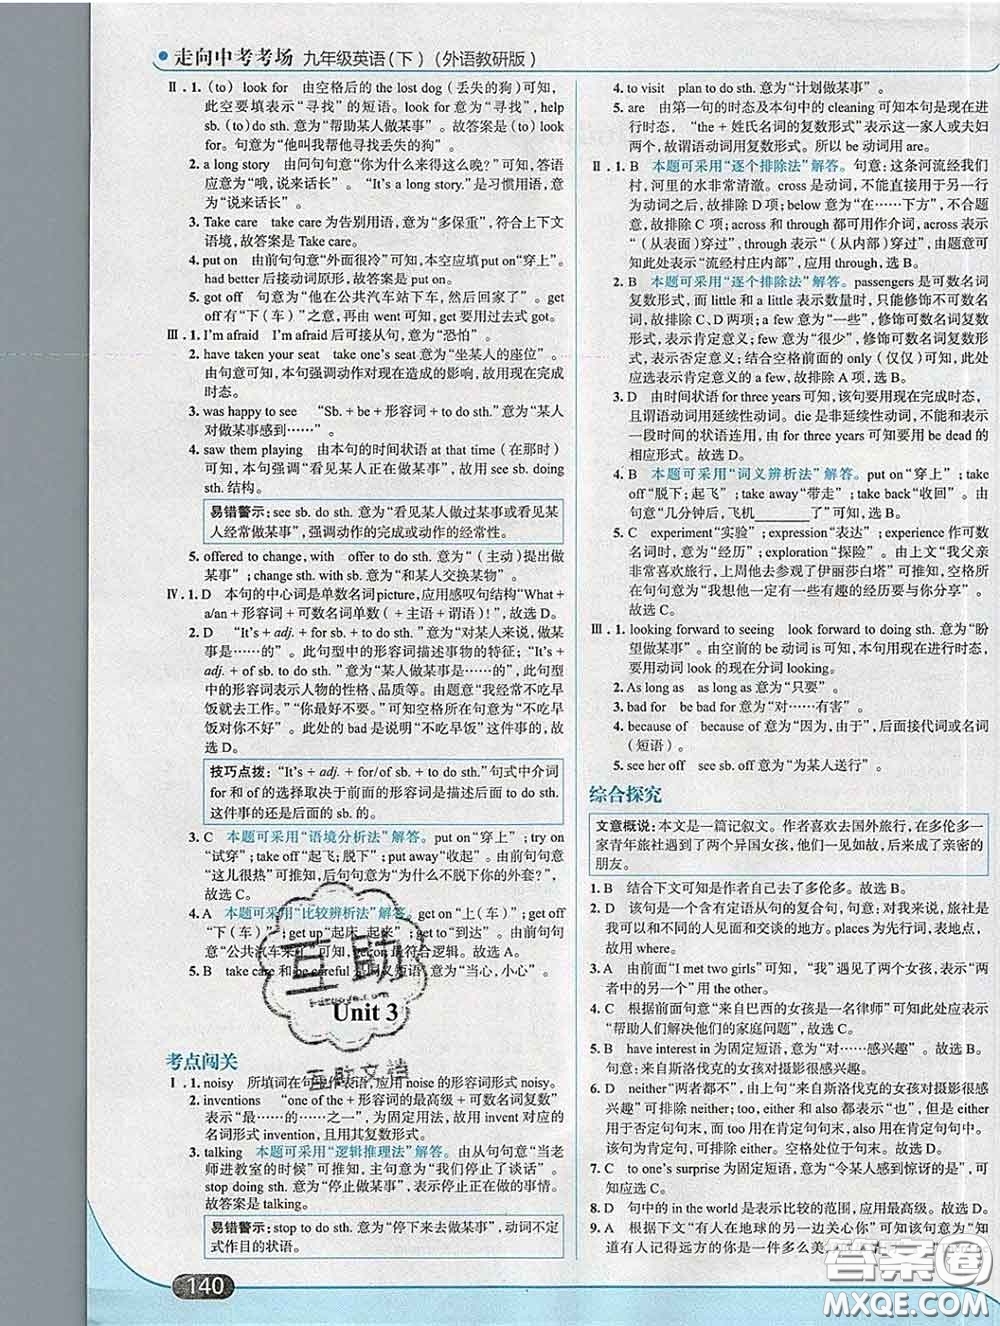 走向中考考场 九年级英语(下)(外语教研版)
Ⅱ.1.(to) look for 由空格后的 the lost dog(丢失的狗)可知,
此空要填表示“寻找”的短语。look for 意为“寻找”,help
sb. (to) do sth. 意为“帮助某人做某事”。故答案是 (to) look
for。句意为“他叫我帮他寻找丢失的狗”。
2. a long story 由问句句意“你为什么来得这么晚?”可知,答语
应意为“哦,说来话长”。“It's a long story.”是习惯用语,意
为“说来话长”。
3. Take care take care 为告别用语,意为“多保重”,符合上下文
语境,故答案是 Take care。
4. put on 由前句句意“外面很冷”可知,本空应填 put on“穿上”。
had better 后接动词原形,故答案是 put on。
5. got off 句意为“他在公共汽车站下车,然后回家了”。get
off 有“下(车)”之意,再由 went 可知,get 要用过去式 got。
Ⅲ.1. I'm afraid I'm afraid 后可接从句,意为“恐怕”。
2. have taken your seat take one's seat 意为“坐某人的座位”。
由句意可知,本句强调动作对现在造成的影响,故用现在完成
时态。
3. was happy to see “Sb. + be + 形容词 + to do sth.”意为“某人
对做某事感到……”。
4. saw them playing 由本句的时间状语 at that time(在那时)
可知,本句强调“看见某人正在做某事”,故用 see sb. doing
sth. 结构。
易错警示: see sb. do sth. 意为“看见某人做过某事或看见某
人经常做某事”,强调动作的完成或动作的经常性。
5. offered to change, with offer to do sth. 意为“(主动)提出做
某事”; change sth. with sb. 意为“和某人交换某物”。
Ⅳ.1. D 本句的中心词是单数名词 picture,应用感叹句结构“What +
a/an + 形容词 + 可数名词单数(+ 主语 + 谓语)!”,故选 D。
2. D “It's + adj. + for sb. + to do sth.”意为“对某人来说,做某
事是……的”。此句型中的形容词描述事物的特征;“It's +
adj. + of sb. to do sth.”意为“某人做某事是……的”,此句型
中的形容词表示人物的性格、品质等。由题意“我经常不吃早
饭就去工作。”“你最好不要。”可知空格所在句意为“不吃早
饭对你不好”。此处的 bad 是说明“不吃早饭”这件事的。故
选 D。
技巧点拨: “It's + adj. + for/of sb. + to do sth.”句式中介词
for 和 of 的选择取决于前面的形容词是描述后面 to do sth.
这件事的还是后面的 sb. 的。
3. C 本题可采用“语境分析法”解答。put on“穿上”; try on
“试穿”; take off“起飞;脱下”; put away“收起”。由前句句意
“这儿很热”可推知,后句句意为“为什么不脱下你的外套?”。
故选 C。
4. A 本题可采用“比较辨析法”解答。get on“上(车)”; get off
“下(车)”; get up“起床,起来”; get to“到达”。由前句句意
“公共汽车来了”可知,get on 应符合逻辑。故选 A。
5. B take care 和 be careful 是同义短语,意为“当心,小心”。
Unit 3
考点闯关
Ⅰ.1. noisy 所填词在句中作表语,应用 noise 的形容词形式 noisy。
2. inventions “one of the + 形容词的最高级 + 可数名词复数”
表示“最……的……之一”,为固定用法,故用 invent 对应的
名词形式 invention,且用其复数形式。
3. talking 本题可采用“逻辑推理法”解答。由从句句意“当老
师进教室的时候”可推知,主句意为“我们停止了谈话”。
stop doing sth. 意为“停止做某事”,表示停止正在做的事情。
故答案是 talking。
易错警示: stop to do sth. 意为“停下来去做某事”,动词不定
式作目的状语。
4. to visit plan to do sth. 意为“计划做某事”。
5. are 由第一句的时态及本句中的 cleaning 可知本句是现在进
行时态,“the + 姓氏名词的复数形式”表示这一家人或夫妇
两个,故谓语动词用复数形式。所以 be 动词用 are。
Ⅱ.1. B 本题可采用“逐个排除法”解答。句意:这条河流经我们
村,河里的水非常清澈。cross 是动词,不能直接用于另一行
为动词之后,故排除 D 项;below 意为“在……下方”,不合题
意,故排除 C 项;across 和 through 都可用作介词,across 表示
“(从表面)穿过”,through 表示“(从内部)穿过”,由题意可
知此处表示“流经村庄内部”,应用 through,选 B。
2. B 本题可采用“逐个排除法”解答。passengers 是可数名词
复数形式,而 little 和 a little 表示数量时,只能修饰不可数名
词,故排除 C、D 两项;a few 意为“一些”,修饰可数名词复数
形式,表示肯定意义;few 意为“很少”,修饰可数名词复数形
式,表示否定意义;结合空格前面的 only(仅仅)可知,此处
应选表示肯定意义的 a few,故排除 A 项,选 B。
3. D 由时间状语 for three years 可知,该句要用现在完成时态,
且谓语动词用延续性动词。die 是非延续性动词,不能和表示
一段时间的状语连用,由 for three years 可知要用 be dead 的
相应形式。故选 D。
4. B 本题可采用“词义辨析法”解答。put on“穿上”; take
off“脱下;起飞”; take away“带走”; take back“收回”。由
句意“几分钟后,飞机________了”可知,选 B。
5. C experiment“实验”; expression“表达”; experience 作可数
名词时,意为“经历”; exploration“探险”。由上文“我父亲
非常喜欢旅行,上周他去参观了伊丽莎白塔”可推知,空格所
在句句意为“我想他一定有一些有趣的经历要与你分享”。
故选 C。
Ⅲ.1. looking forward to seeing look forward to doing sth. 意为“盼
望做某事”。由空前的 be 动词 is 可知,本句用现在进行时态,
要用动词 look 的现在分词 looking。
2. As long as as long as 意为“只要”。
3. bad for be bad for 意为“对……有害”。
4. because of because of 意为“因为,由于”,后面接代词或名词
(短语)。
5. see her off see sb. off 意为“为某人送行”。
综合探究
文意概说:本文是一篇记叙文。作者喜欢去国外旅行,在多伦多一
家青年旅社遇到了两个异国女孩,他们一见如故,后来成了亲密的
朋友。
1. B 结合下文可知是作者自己去了多伦多。故选 B。
2. D 该句是一个含有定语从句的复合句,句意:对我来说,旅社是
我可以和不同的人见面和交谈的地方。places 为先行词,表地点,
故用 where。
3. A 由前面“I met two girls”可知,“我”遇见了两个女孩,表示“两
者中的另一个”用 the other。
4. C 根据前面句意“来自巴西的女孩是一名律师”可知此处应表示
“帮助人们解决他们的家庭问题”,故选 C。
5. B have interest in 为固定短语,意为“对……感兴趣”。故选 B。
句意:来自斯洛伐克的女孩对摄影很感兴趣。
6. D neither“两者都不”,由上句“来自斯洛伐克的女孩对摄影很感
兴趣”可排除 neither;too, either 和 also 都表示“也”,但是 either
用于否定句句末,而 too 用在肯定句句末,also 用在肯定句句中。
该句为肯定句,可排除 either。空格处位于句末。故选 D。
7. C to one's surprise 为固定短语,意为“令某人感到惊讶的是”,可
知应选 C。
8. D 句中的 in the world 是表示比较的范围,应用最高级。故选 D。
9. A 根据下文“有人在地球的另一边关心你”可知该句意为“知
道有人记得远方的你是一件多么美
140
互助
互助文档
答案圈
MXQE.COM